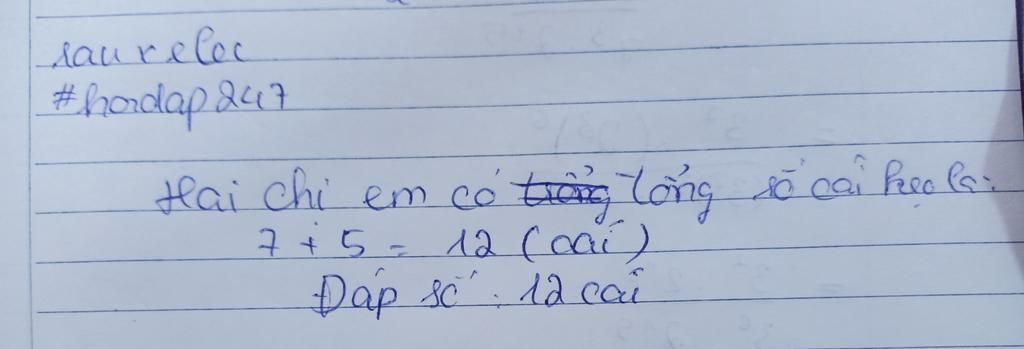 saureloc
#hoidap247
Hai chi em có tổng số cái kẹo là:
7 + 5 = 12 (cái)
Đáp số : 12 cái